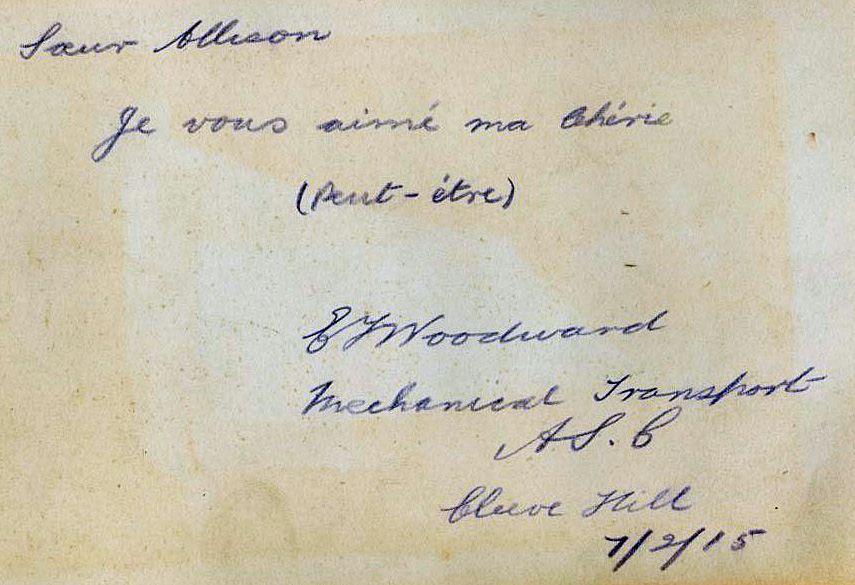 Sœur Allison
Je vous aimé ma Chérie
(Peut-étre)
E J Woodward
Mechanical Transport
A.S.C
Cleeve Hill
7/2/15